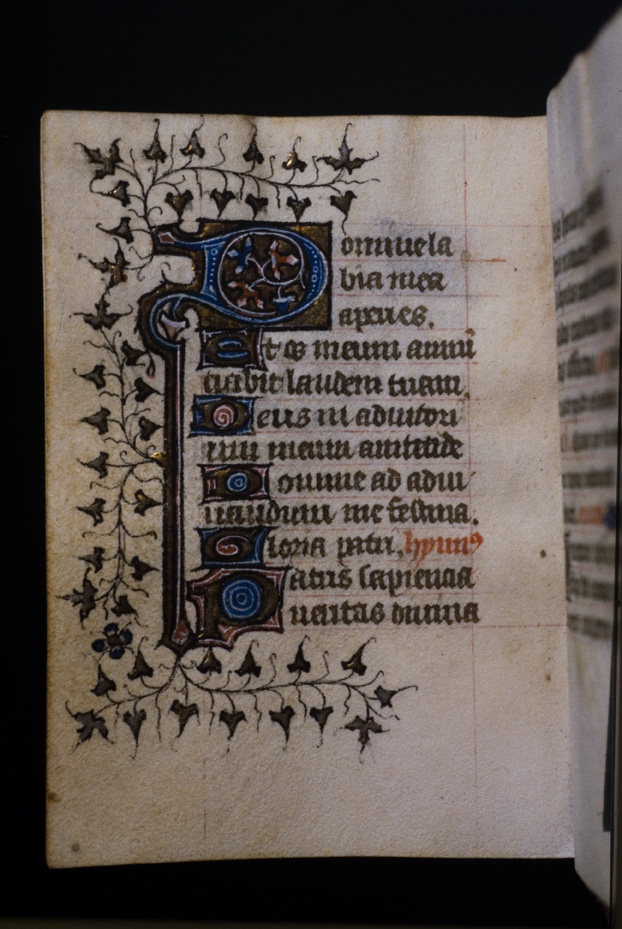 Domine la
bia mea
aperies.
Et os meum annū
ciabit laudem tuam.
Deus in adiutori
um meum intende
Domine ad adiu
uandum me festina.
Gloria patri. hymnꝰ
Patris sapiencia
ueritas diuina